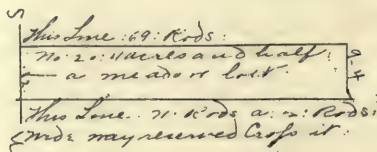 This Line : 69 : Rods :
No : 20 : 11 acres and half :
a meadow lott.
9-4
This Line 71 Rods a : 2 : Rods :
Wide way reserved Cross it :